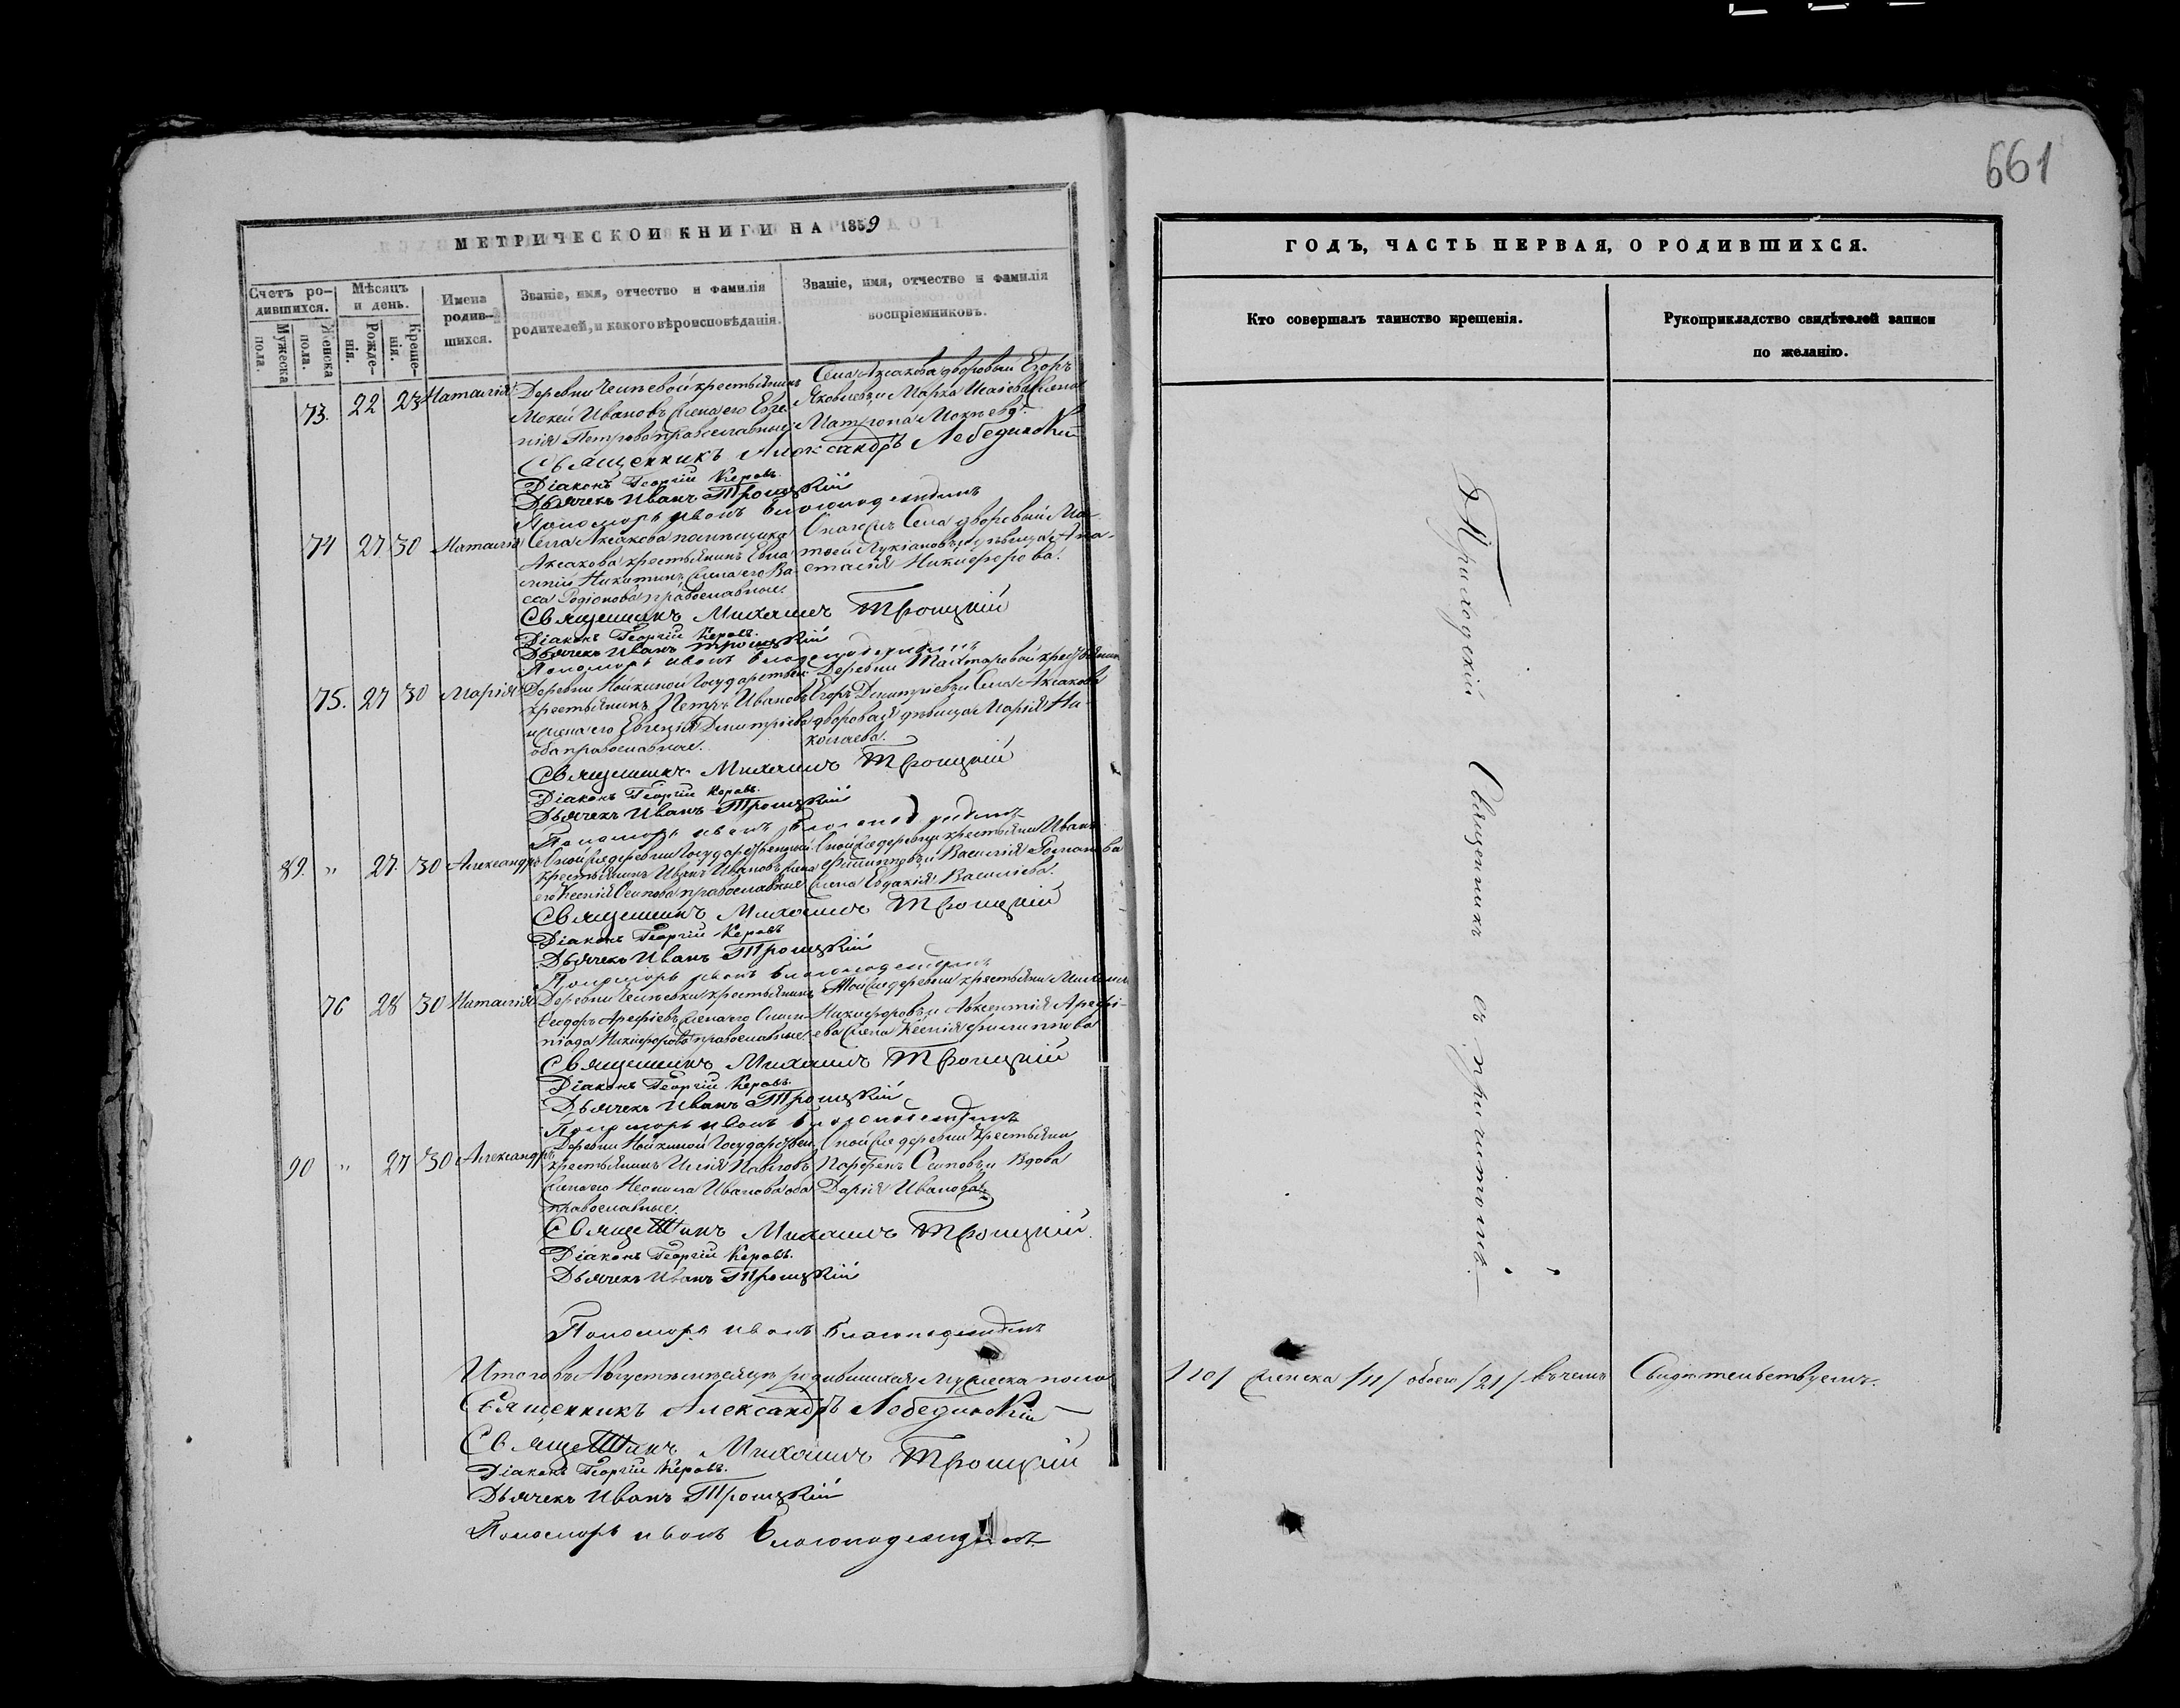 661
МЕТРИЧЕСКОЙ КНИГИ НА 1859
ГОДЪ, ЧАСТЬ ПЕРВАЯ, О РОДИВШИХСЯ.
Счетъ ро-
дившихся.
Мужеска
пола.
Женска
пола.
Мѣсяцъ
и день.
Рожде-
нія.
Креше-
нія.
Имена
родив-
шихся.
Званіе, имя, отчество и фамилія
родителей, и какого вѣроисповѣданія.
Званіе, имя, отчество и фамилія
воспріемниковъ.
Кто совершалъ таинство крещенія.
Рукоприкладство свидѣтелей записи
по желанію.
73. 22 23 Наталія
крестьянинъ
Мокей Ивановъ жена его Евге-
нія Петрова православные
Села Аксакова дворовый Егоръ
Яковлевъ и Марка Исаева жена
Матрона Мокѣева.
Священникъ Александръ Лебединскій
Діаконъ Георгій Керовъ.
Дьячекъ Иванъ Троицкій
Пономорь иванъ
74 27 30 Наталія
Села Аксакова помѣщика
Аксакова крестьянинъ
Никитинъ жена его Ва-
сса Родіонова православные.
Села дворовый Ма-
твей Лукіановъ и дѣвица Ана-
стасія Никифорова.
Священникъ Михаилъ Троицкій
Діаконъ Георгій Керовъ.
Дьячекъ Иванъ Троицкій
Пономорь иванъ
75. 27 30 Марія
Деревни Нойкиной Государствен
крестьянинъ Петръ Ивановъ
и жена его Евгенія Димитріева
оба православные.
Деревни крестьянин
Егоръ Димитріевъ и Села Аксакова
дворовая дѣвица Марія Ни-
колаева.
Священникъ Михаилъ Троицкій
Діаконъ Георгій Керовъ.
Дьячекъ Иванъ Троицкій
Пономорь иванъ
89. " 27. 30 Александръ
Оной же деревни Государственный
крестьянинъ Иванъ Ивановъ жена
его Ксенія Осипова православные
Оной же деревни крестьяни Иванъ
Филипповъ и Василія Романова
жена Евдакія Василіева.
Священникъ Михаилъ Троицкій
Діаконъ Георгій Керовъ
Дьячекъ Иванъ Троицкій
Пономорь иванъ
76 28 30 Наталія
крестьянинъ
Ѳеодоръ Арефіевъ жена его Олим-
піада Никифорова православные.
Той же деревни крестьяни Михаилъ
Никифоровъ и Авксентія Арефі-
ева жена Ксенія Филиппова
Священникъ Михаилъ Троицкій
Діаконъ Георгій Керовъ.
Дьячекъ Иванъ Троицкій
Пономорь иванъ
90 " 27 30 Александръ
Деревни Нойкиной Государствен
крестьянинъ Илія Павловъ
жена его Неонила Иванова оба
православные.
Оной же деревни Крестьяни
Парфенъ Осиповъ и Вдова
Дарія Иванова.
Священникъ Михаилъ Троицкій.
Діаконъ Георгій Керовъ.
Дьячекъ Иванъ Троицкій
Пономорь иванъ
Приходскій Священникъ съ причтомъ.
Итого въ Августѣ мѣсяцѣ родившихся мужеска пола /10/ женска /11/ обоего /21/ въ чемъ Свидѣтельствуемъ.
Священникъ Александръ Лебединскій
Священникъ Михаилъ Троицкій
Діаконъ Георгій Керовъ.
Дьячекъ Иванъ Троицкій
Пономорь иванъ